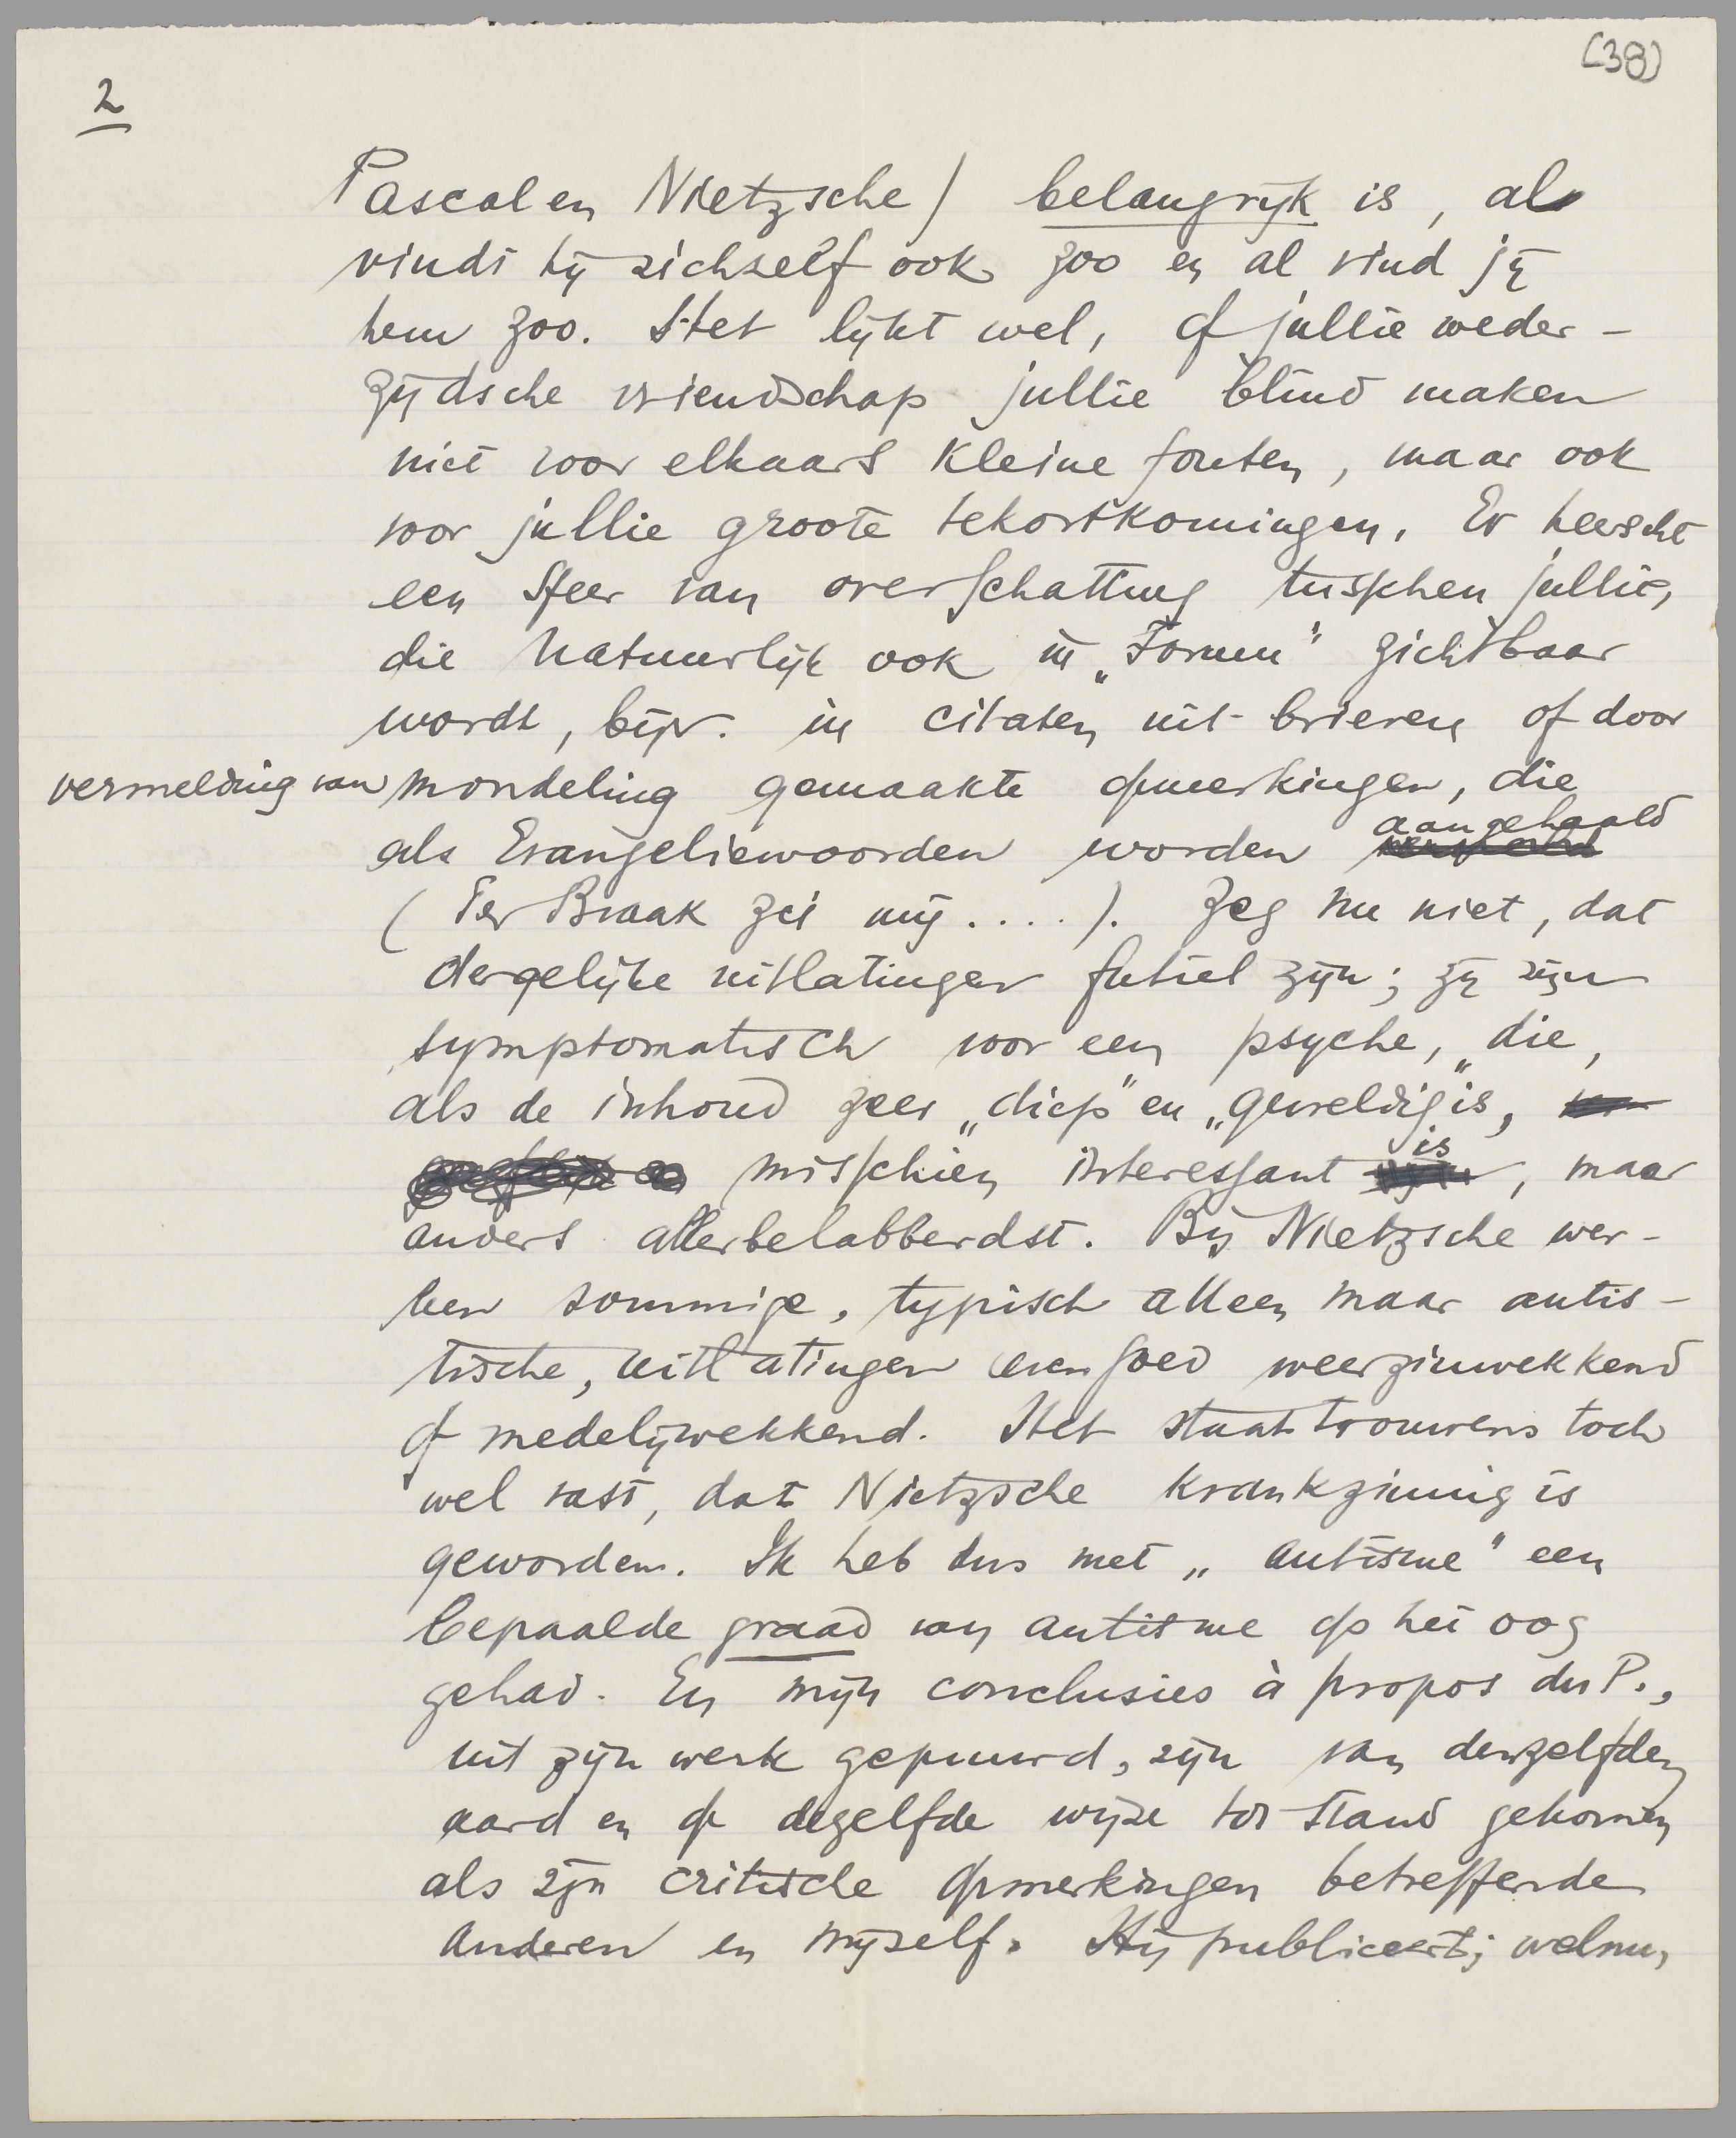 (38)
2
Pascal en Nietzsche) belangrijk is, al
vindt hij zichzelf ook zoo en al vind jij
hem zoo. Het lijkt wel, of jullie weder-
zijdsche vriendschap jullie blind maken
niet voor elkaars kleine fouten, maar ook
voor jullie groote tekortkomingen. Er heerscht
een sfeer van overschatting tusschen jullie,
die natuurlijk ook in „Forum" zichtbaar
wordt, bijv. in citaten uit brieven of door
vermelding van mondeling gemaakte opmerkingen, die
als Evangeliewoorden worden aangehaald
(Ter Braak zei mij....). Zeg nu niet, dat
dergelijke uitlatingen futiel zijn; zij zijn
symptomatisch voor een psyche, die,
als de inhoud zeer „diep" en „geweldig" is,
misschien interessant is, maar
anders allerbelabberdst. Bij Nietzsche wer-
ken sommige, typisch alleen maar autis-
tische, uitlatingen evengoed weerzinwekkend
of medelijwekkend. Het staat trouwens toch
wel vast, dat Nietzsche krankzinnig is
geworden. Ik heb dus met „autisme" een
bepaalde graad van autisme op het oog
gehad. En mijn conclusies à propos du P.,
uit zijn werk gepuurd, zijn van denzelfden
aard en op dezelfde wijze tot stand gekomen
als zijn critische opmerkingen betreffende
anderen en mijzelf. Hij publiceert; welnu,